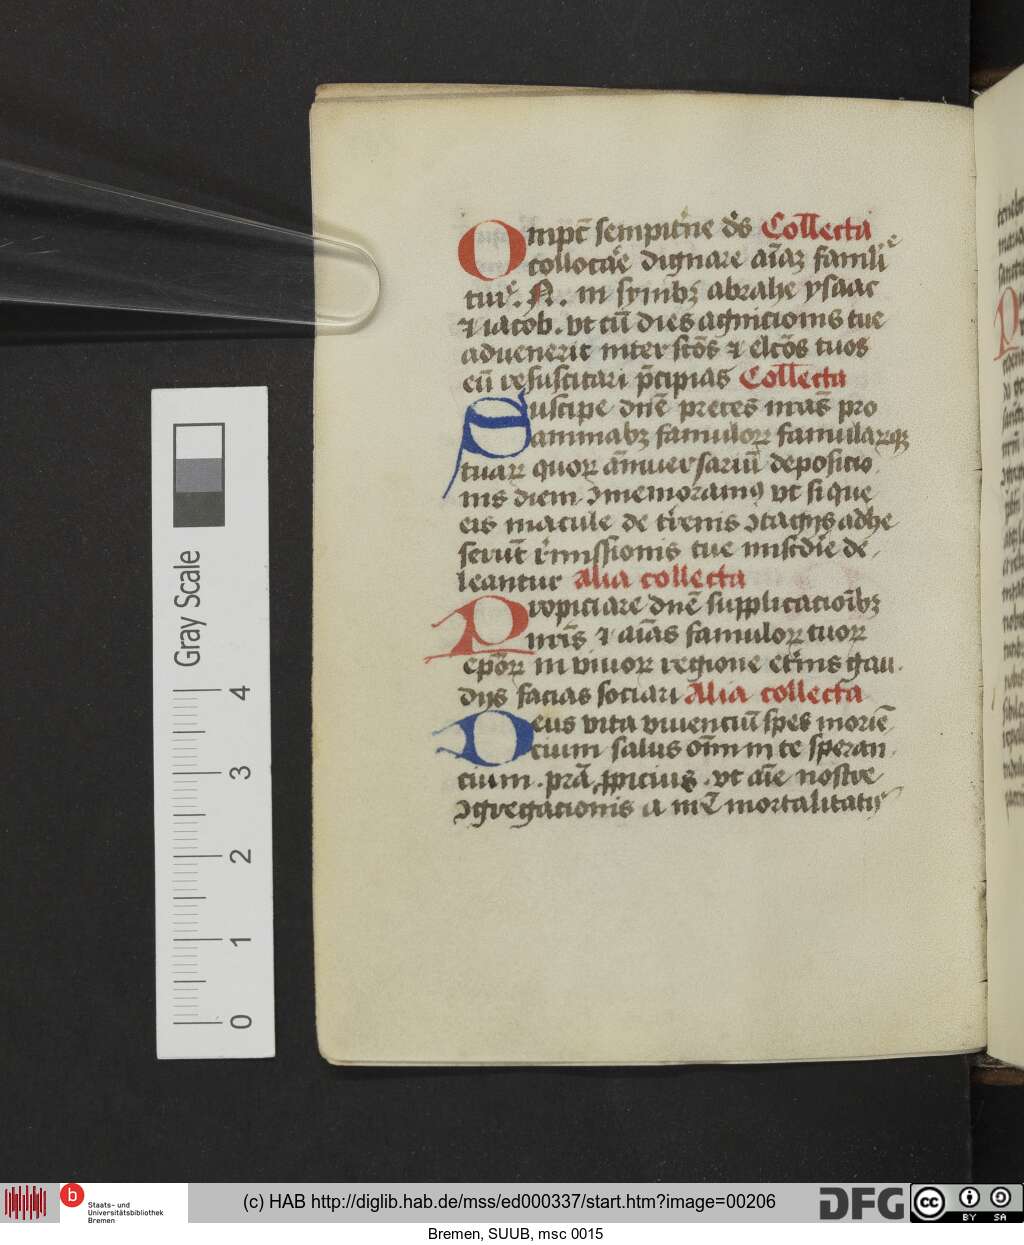 Omp̄t sempit'ne ds̄ Collecta
collocare dignare aīaꝫ famli
tui. N. in synibꝫ abrahe ysaac
⁊ iacob. vt cū dies agnicionis tue
aduenerit inter sc̄os ⁊ elc̄os tuos
eū resuscitari p̄cipias Collecta
Suscipe dn̄e preces nr̄as pro
animabꝫ famuloꝝ famularūqꝫ
tuaꝝ quoꝝ ān̄iuersariū deposicio
nis diem ꝯmemoramꝰ vt si que
eis macule de t'renis ꝯtagijs adhe
serūt r'missionis tue mis'cdie de
leantur Alia collecta
Propiciare dn̄e supplicacioībꝫ
nr̄is ⁊ aīas famuloꝝ tuoꝝ
ep̄oꝝ in viuoꝝ regione et'nis gau
dijs facias sociari Alia collecta
Deus vita viuenciū spes moriē
cium salus oīm in te speran
cium . pr̄a ꝓpicius . vt aīe nostre
ꝯgregacionis a nr̄e mortalitatis
Gray Scale
4
3
2
1
0
b Staats- und
Universitätsbibliothek
Bremen
(c) HAB http://diglib.hab.de/mss/ed000337/start.htm?image=00206
DFG
cc BY SA
Bremen, SUUB, msc 0015